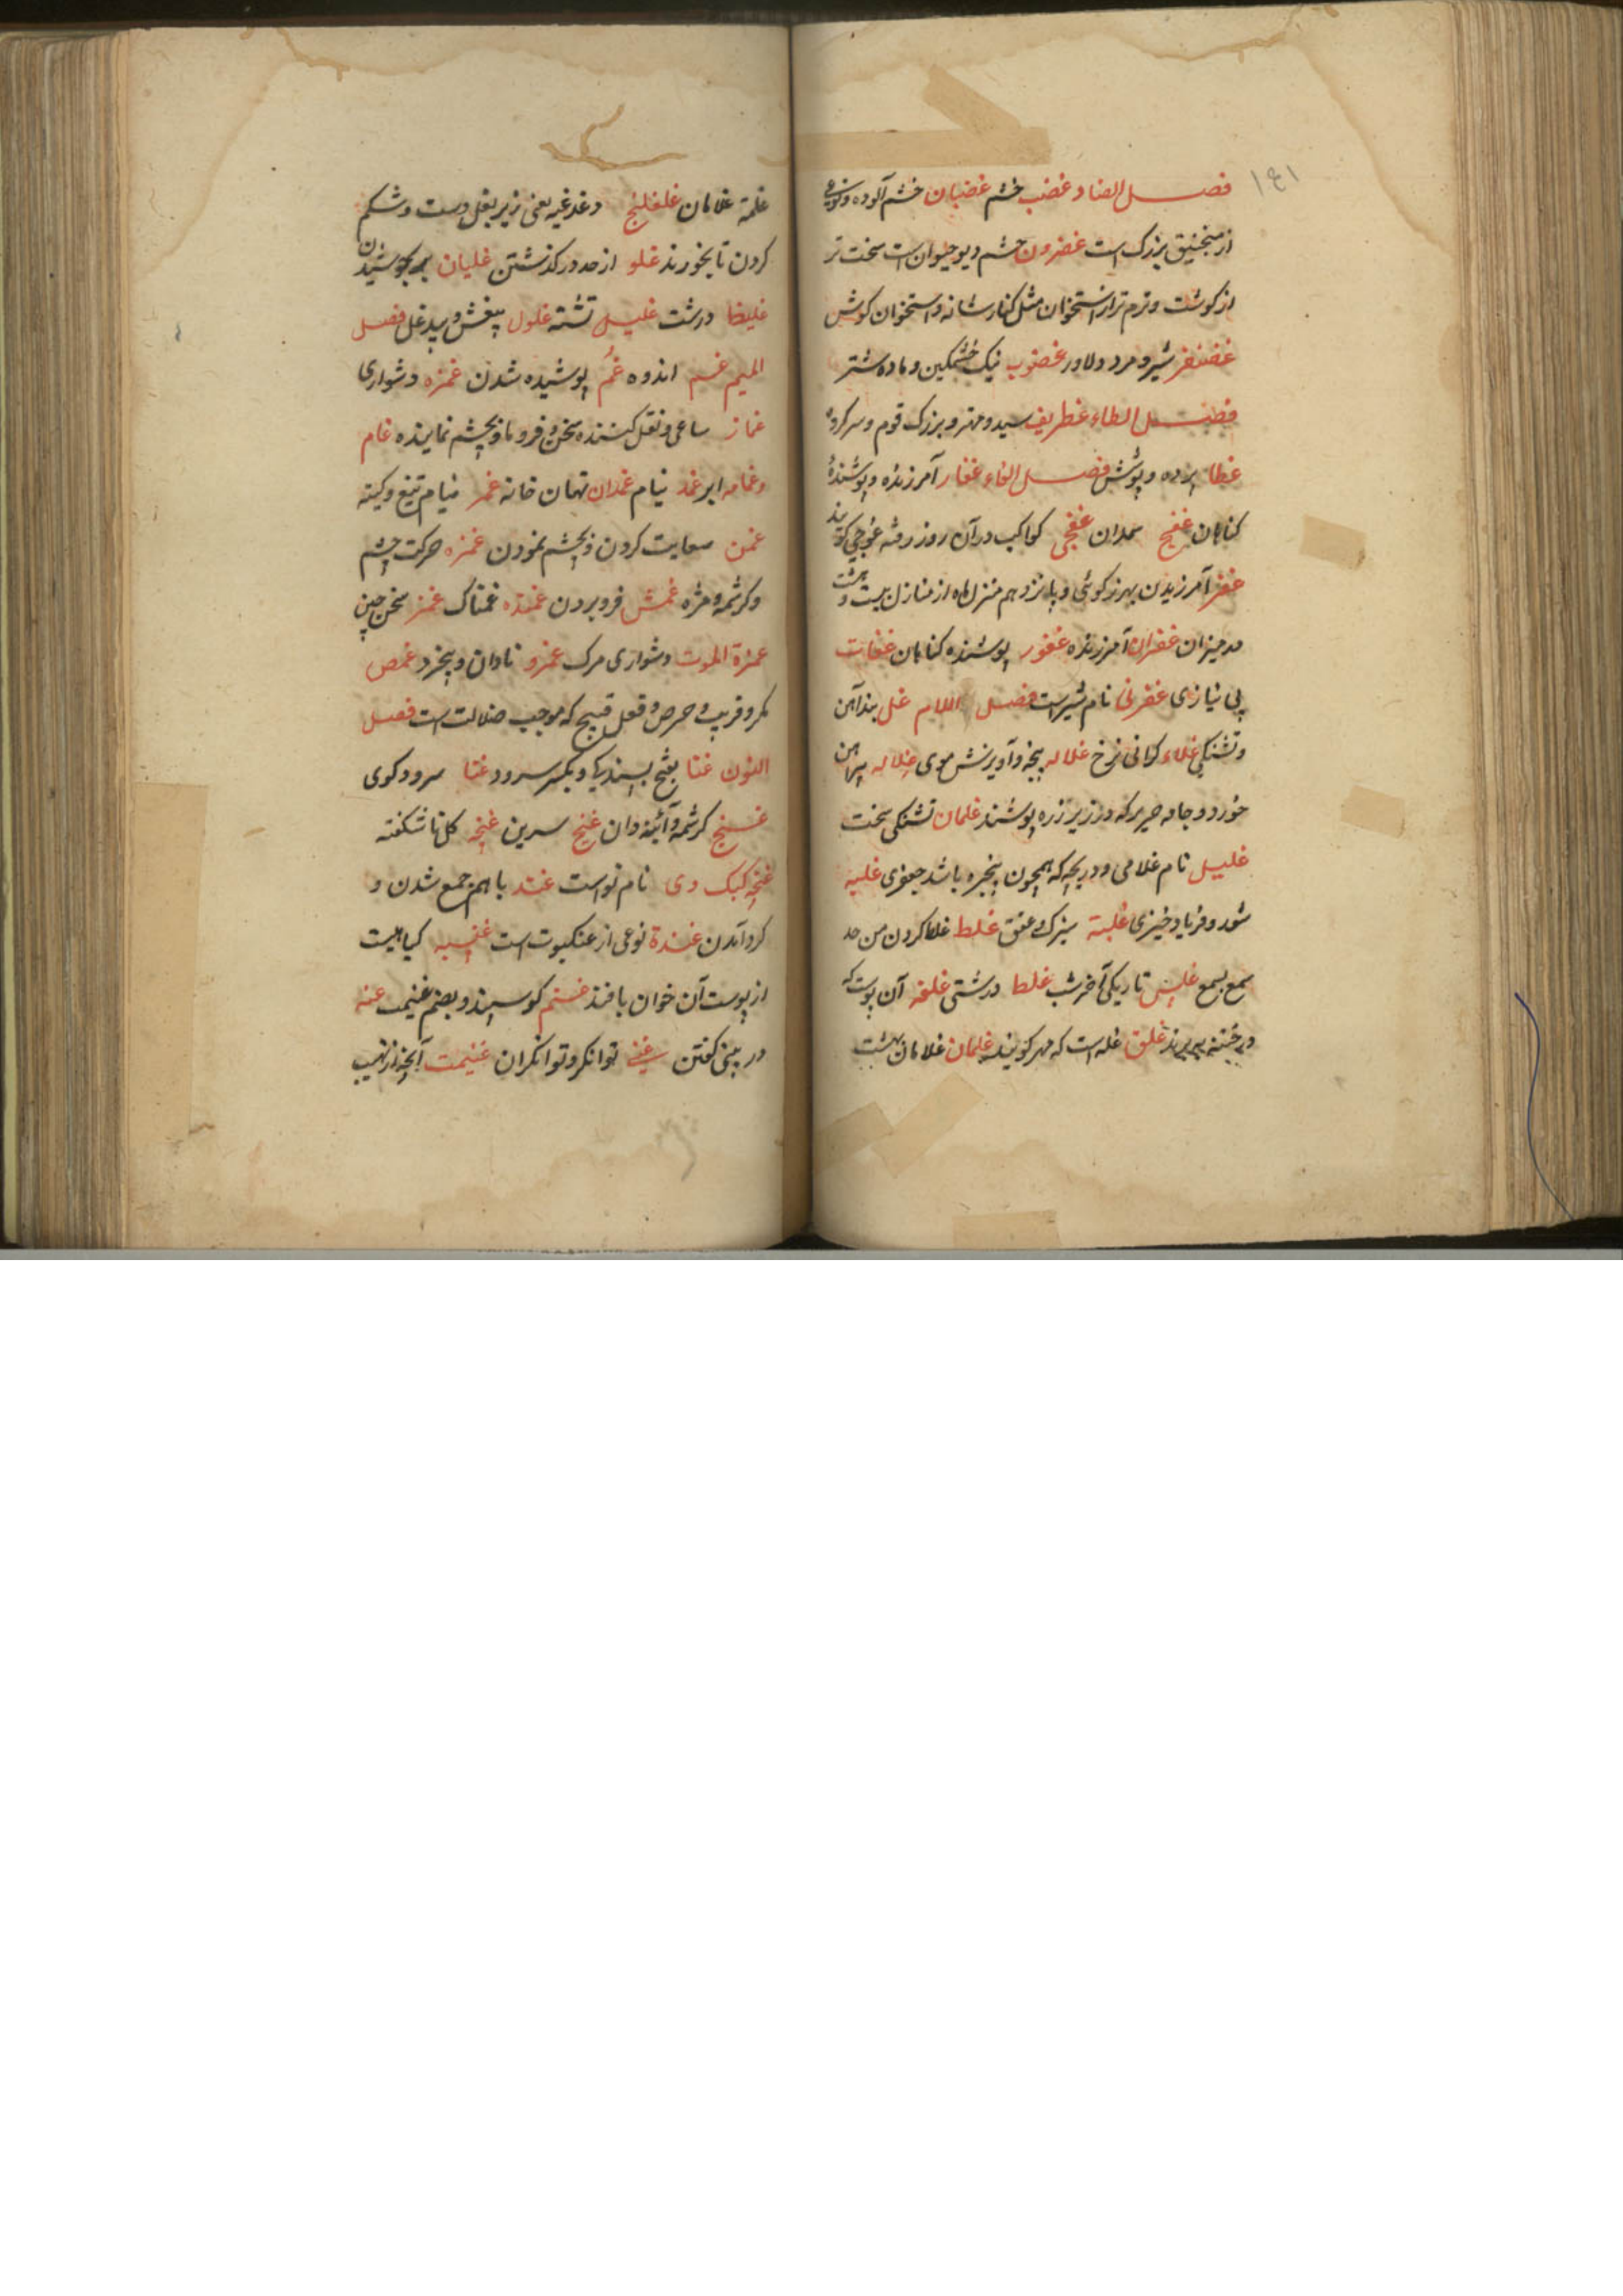 ١٤١
فصل الضاد غضب خشم غضبان خشم آلوده و نوعی
از منجنیق بزرک است غضرون خشم دیو حیوان است سخت تر
از کوشت و نرم تر از استخوان مثل کنار شانه و استخوان کوش
غضنفر شیر و مرد دلاور غضوب نیک خشمکین و ماده شتر
فصل الطاء غطریف سید و مهتر و بزرک قوم و سر کروه
غطا پرده و پوشش فصل الفاء غفار آمرزنده و پوشندهٔ
کناهان غفج سمدان غفجی کواکب در آن روز رفته غوجی کویند
غفر آمرزیدن بهر کوئی و پانزدهم منزل ماه از منازل بیست و هشت
در میزان غفران آمرزنده غفور پوشنده کناهان غفات
بی نیازی غفرنی نام شیر است فصل اللام غل بند آهن
و تشنکی غلاء کرانی نرخ غلاله پیچه و آویزش موی غلاله پیراهن
خورد و جامه حریر که در زیر زره پوشند غلمان تشنکی سخت
غلیل نام غلامی و دریچه که همچون پنجره باشد جعفری غلبه
شور و فریاد و خیزی غلبة بزرک عنق غلط غلط کردن من حد
سمع یسمع غلس تاریکی آخر شب غلظ درشتی غلفه آن پوست که
در ختنه می برند غلق غله است که مهر کویند غلمان غلامان بهشت
غلمة غلامان غلغلیج دغدغیه یعنی زیر بغل دست و شکم
کردن تا بخورند غلو از حد در کذشتن غلیان بر جوشیدن
غلیظ درشت غلیل تشنه غلول بیغش و بیدغل فصل
المیم غم اندوه غم پوشیده شدن غمزه دشواری
غماز ساعی و نقل کننده سخن و فرو ماند و بچشم نماینده غام
وغامه ابر غمد نیام غمدان نهان خانه غمر نیام تیغ و کینه
غمن سعایت کردن و بچشم نمودن غمزه حرکت چشم
و کرشمه و مژه غمش فرو بردن غمنده غمناک غمز سخن چین
غمزة الموت دشواری مرک غمزو نادان و بیخرد غمص
مکر و فریب و حرص و فعل قبیح که موجب ضلالت است فصل
النون غنا بفتح بسندیک و بکسر سرود غنا سرود کوی
غنج کرشمه و آئینه دان غنج سرین غنچه کل ناشکفته
غنچه کبک دی نام نواست غند باهم جمع شدن و
کرد آمدن غندة نوعی از عنکبوت است غنیبه کیاهیست
از پوست آن خوان بافند غنم کوسپند و بضم غنیمت غنه
در بینی کفتن غنی توانکر و توانکران غنیمت آنچه از نهیب